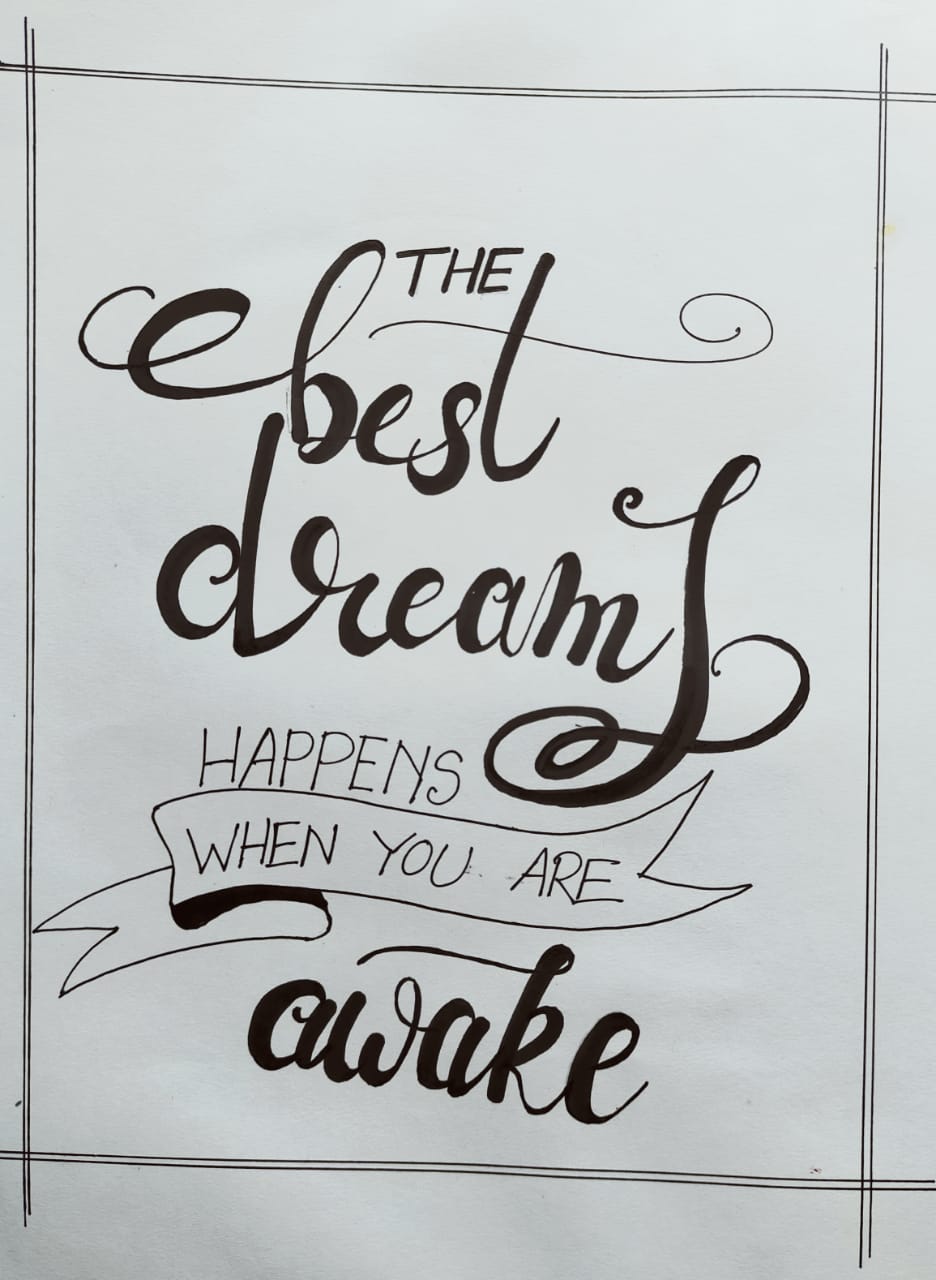 THE
best
dreams
HAPPENS
WHEN YOU ARE
awake